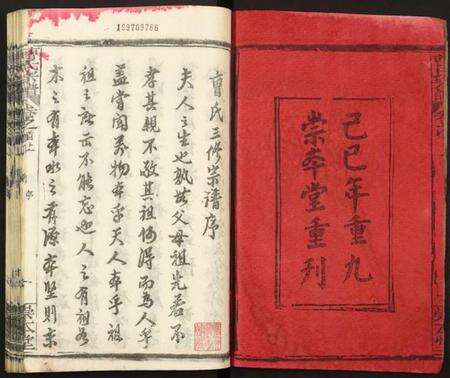 己巳年重九
崇本堂重刊
199709766
曹氏三修宗譜序
夫人之生也孰無父母祖先若不
孝其親不敬其祖何得而為人乎
蓋嘗聞萬物本乎天人本乎祖
祖之所出不能忘也人之有祖如
木之有本水之有源本堅則末